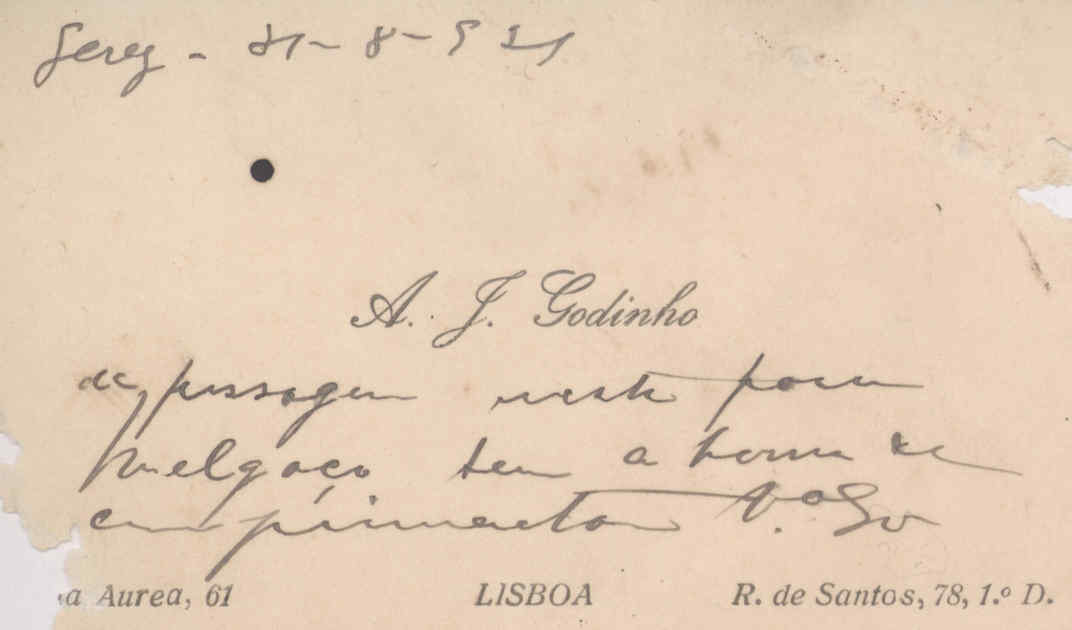 Gerez - 21-8-921
A. J. Godinho
de passagem nesta para
Melgaço tem a honra de
cumprimentar V.
a Aurea, 61 LISBOA R. de Santos, 78, 1.º D.